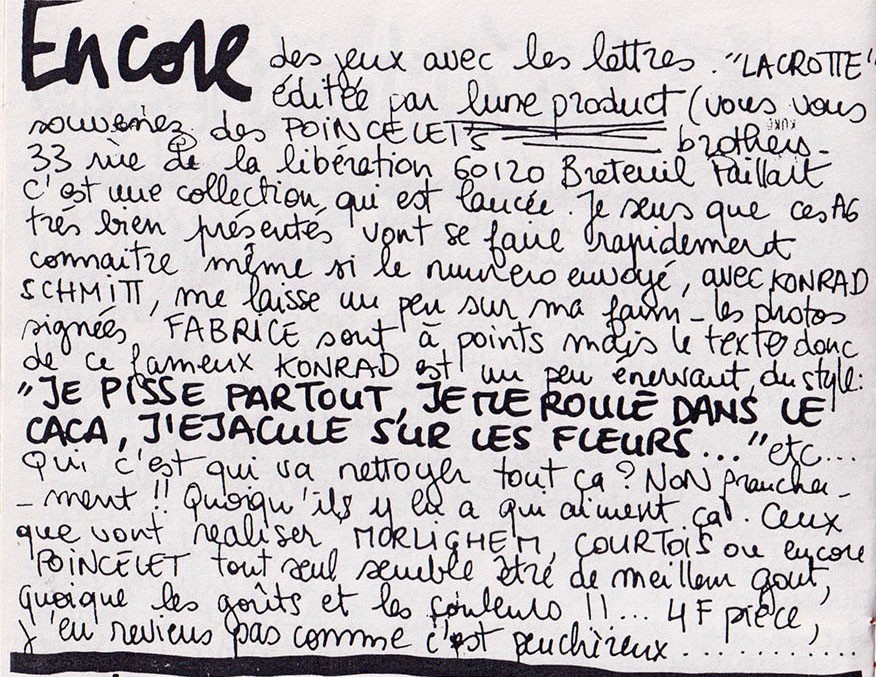 Encore des jeux avec les lettres. "LACROTTE"
éditée par lune product (vous vous
souvenez des POINCELET'S brothers -
33 rue de la libération 60120 Breteuil Paillart
C'est une collection qui est lancée. Je sens que ces A6
très bien présentés vont se faire rapidement
connaitre même si le numéro envoyé, avec KONRAD
SCHMITT, me laisse un peu sur ma faim - les photos
signées FABRICE sont à points mais le texte donc
de ce fameux KONRAD est un peu énervant, du style:
"JE PISSE PARTOUT, JE ME ROULE DANS LE
CACA, J'EJACULE SUR LES FLEURS..." etc...
Qui c'est qui va nettoyer tout ça? NON franche-
-ment!! Quoiqu'ils y en a qui aiment ça. Ceux
que vont realiser MORLIGHEM, COURTOIS ou encore
POINCELET tout seul semble être de meilleur gout,
quoique les goûts et les couleurs!!... 4F pièce,
j'en reviens pas comme c'est peuchèreux............